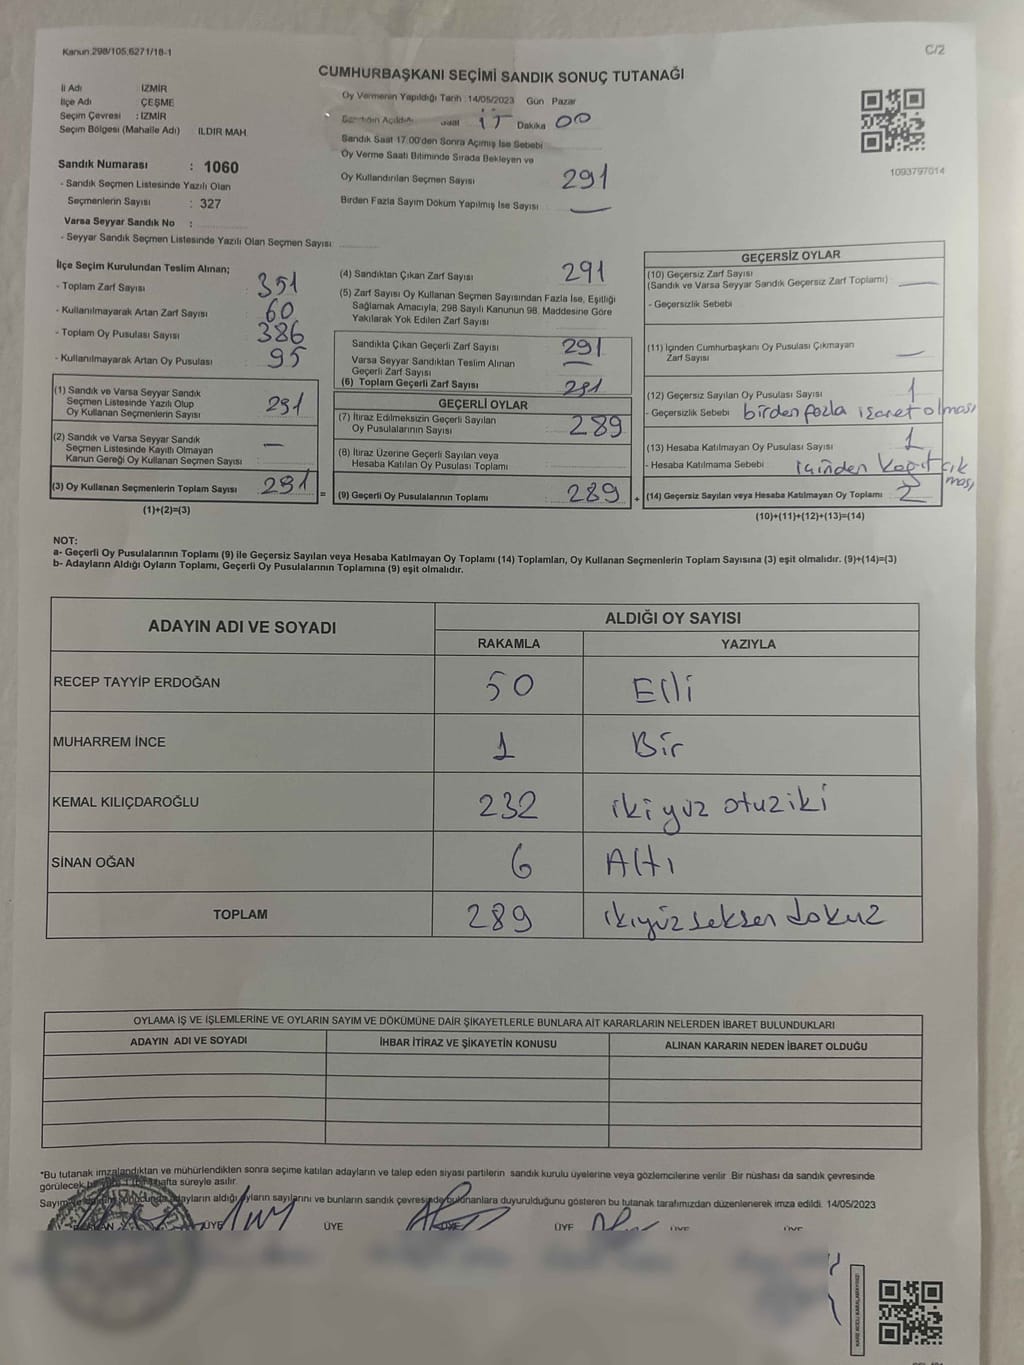 Kanun.298/105,6271/18-1
C/2
CUMHURBAŞKANI SEÇİMİ SANDIK SONUÇ TUTANAĞI
İl Adı İZMİR
İlçe Adı ÇEŞME
Seçim Çevresi : İZMİR
Seçim Bölgesi (Mahalle Adı) ILDIR MAH.
Sandık Numarası : 1060
- Sandık Seçmen Listesinde Yazılı Olan
Seçmenlerin Sayısı : 327
Varsa Seyyar Sandık No :
- Seyyar Sandık Seçmen Listesinde Yazılı Olan Seçmen Sayısı
Oy Vermenin Yapıldığı Tarih :14/05/2023 Gün Pazar
Sandığın Açıldığı Saat 17 Dakika 00
Sandık Saat 17.00'den Sonra Açımış İse Sebebi
Oy Verme Saati Bitiminde Sırada Bekleyen ve
Oy Kullandırılan Seçmen Sayısı 291
Birden Fazla Sayım Döküm Yapılmış İse Sayısı —
1093797014
İlçe Seçim Kurulundan Teslim Alınan;
- Toplam Zarf Sayısı 351
- Kullanılmayarak Artan Zarf Sayısı 60
- Toplam Oy Pusulası Sayısı 386
- Kullanılmayarak Artan Oy Pusulası 95
(1) Sandık ve Varsa Seyyar Sandık
Seçmen Listesinde Yazılı Olup
Oy Kullanan Seçmenlerin Sayısı 291
(2) Sandık ve Varsa Seyyar Sandık
Seçmen Listesinde Kayıtlı Olmayan
Kanun Gereği Oy Kullanan Seçmen Sayısı —
(3) Oy Kullanan Seçmenlerin Toplam Sayısı 291 =
(1)+(2)=(3)
(4) Sandıktan Çıkan Zarf Sayısı 291
(5) Zarf Sayısı Oy Kullanan Seçmen Sayısından Fazla İse, Eşitliği
Sağlamak Amacıyla, 298 Sayılı Kanunun 98. Maddesine Göre
Yakılarak Yok Edilen Zarf Sayısı
Sandıkla Çıkan Geçerli Zarf Sayısı 291
Varsa Seyyar Sandıktan Teslim Alınan
Geçerli Zarf Sayısı —
(6) Toplam Geçerli Zarf Sayısı 291
GEÇERLİ OYLAR
(7) İtiraz Edilmeksizin Geçerli Sayılan
Oy Pusulalarının Sayısı 289
(8) İtiraz Üzerine Geçerli Sayılan veya
Hesaba Katılan Oy Pusulası Toplamı
(9) Geçerli Oy Pusulalarının Toplamı 289 +
GEÇERSİZ OYLAR
(10) Geçersiz Zarf Sayısı
(Sandık ve Varsa Seyyar Sandık Geçersiz Zarf Toplamı) —
- Geçersizlik Sebebi
(11) İçinden Cumhurbaşkanı Oy Pusulası Çıkmayan
Zarf Sayısı —
(12) Geçersiz Sayılan Oy Pusulası Sayısı 1
- Geçersizlik Sebebi birden fazla işaret olması
(13) Hesaba Katılmayan Oy Pusulası Sayısı 1
- Hesaba Katılmama Sebebi içinden kağıt çık
ması
(14) Geçersiz Sayılan veya Hesaba Katılmayan Oy Toplamı 2
(10)+(11)+(12)+(13)=(14)
NOT:
a- Geçerli Oy Pusulalarının Toplamı (9) ile Geçersiz Sayılan veya Hesaba Katılmayan Oy Toplamı (14) Toplamları, Oy Kullanan Seçmenlerin Toplam Sayısına (3) eşit olmalıdır. (9)+(14)=(3)
b- Adayların Aldığı Oyların Toplamı, Geçerli Oy Pusulalarının Toplamına (9) eşit olmalıdır.
ADAYIN ADI VE SOYADI ALDIĞI OY SAYISI
RAKAMLA YAZIYLA
RECEP TAYYİP ERDOĞAN 50 Elli
MUHARREM İNCE 1 Bir
KEMAL KILIÇDAROĞLU 232 ikiyüz otuziki
SİNAN OĞAN 6 Altı
TOPLAM 289 ikiyüz seksen dokuz
OYLAMA İŞ VE İŞLEMLERİNE VE OYLARIN SAYIM VE DÖKÜMÜNE DAİR ŞİKAYETLERLE BUNLARA AİT KARARLARIN NELERDEN İBARET BULUNDUKLARI
ADAYIN ADI VE SOYADI İHBAR İTİRAZ VE ŞİKAYETİN KONUSU ALINAN KARARIN NEDEN İBARET OLDUĞU
*Bu tutanak imzalandıktan ve mühürlendikten sonra seçime katılan adayların ve talep eden siyasi partilerin sandık kurulu üyelerine veya gözlemcilerine verilir. Bir nüshası da sandık çevresinde
görülecek bir yere 1 (bir) hafta süreyle asılır.
adayların aldığı oyların sayılarını ve bunların sandık çevresinde bulunanlara duyurulduğunu gösteren bu tutanak tarafımızdan düzenlenerek imza edildi. 14/05/2023
ÜYE ÜYE ÜYE ÜYE ÜYE ÜYE